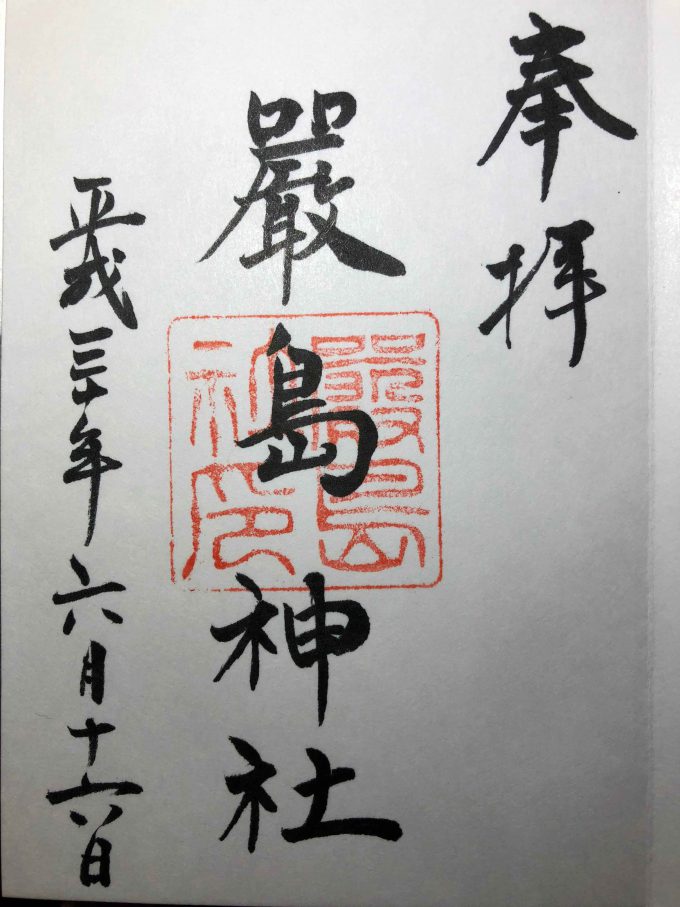 奉拝
嚴島神社
平成三十年六月十六日
嚴島
印